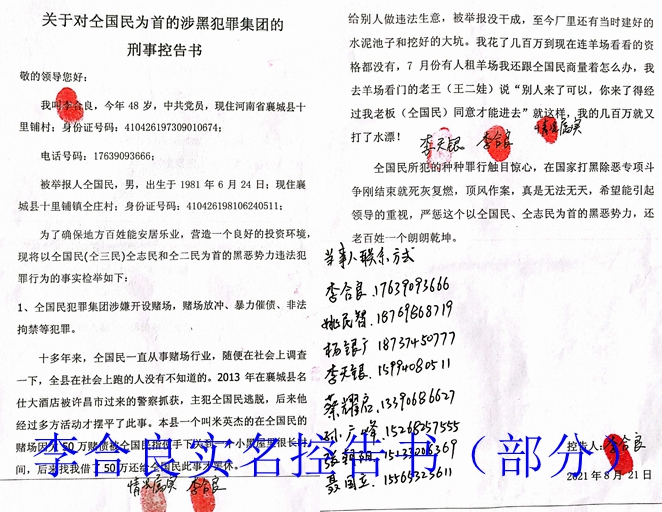 关于对仝国民为首的涉黑犯罪集团的
刑事控告书
敬的领导您好：
我叫李合良，今年 48 岁，中共党员，现住河南省襄城县十
里铺村；身份证号码：410426197309010674；
电话号码：17639093666；
被举报人仝国民，男，出生于 1981 年 6 月 24 日；现住襄
城县十里铺镇仝庄村；身份证号码：410426198106240511；
为了确保地方百姓能安居乐业，营造一个良好的投资环境，
现将以仝国民(仝三民)仝志民和仝二民为首的黑恶势力违法犯
罪行为的事实检举如下：
1、仝国民犯罪集团涉嫌开设赌场，赌场放冲、暴力催债、非法
拘禁等犯罪。
十多年来，仝国民一直从事赌场行业，随便在社会上调查
一下，全县在社会上跑的人没有不知道的。2013 年在襄城县名
仕大酒店被许昌市过来的警察抓获，主犯仝国民逃脱，后来他
经过多方活动才摆平了此事。本县一个叫米英杰的在仝国民的
赌场因欠 50 万赌债被仝国民指使手下关到一个小黑屋里很长时
间，后来我我借了 50 万还给仝国民此事才罢休。
情况属实 李合良
给别人做违法生意，被举报没干成，至今厂里还有当时建好的
水泥池子和挖好的大坑。我花了几百万到现在连羊场看看的资
格都没有，7 月份有人租羊场我还跟仝国民商量着怎么办，我
去羊场看门的老王（王二娃）说“别人来了可以，你来了得经
过我老板（仝国民）同意才能进去”就这样，我的几百万就又
打了水漂！
李天银 李合良 情况属实
仝国民所犯的种种罪行触目惊心，在国家打黑除恶专项斗
争刚结束就死灰复燃，顶风作案，真是无法无天，希望能引起
领导的重视，严惩这个以仝国民、仝志民为首的黑恶势力，还
老百姓一个朗朗乾坤。
当事人联系方式
李合良.17639093666
姚民智.18769868719
杨银广 18737450777
李天银.15994080511
荣耀启.13390686627
孙广峰 15268257555
张 15233206369
聂国立.15565323611
控告人：李合良
2021 年 8 月 21 日
李合良实名控告书（部分）